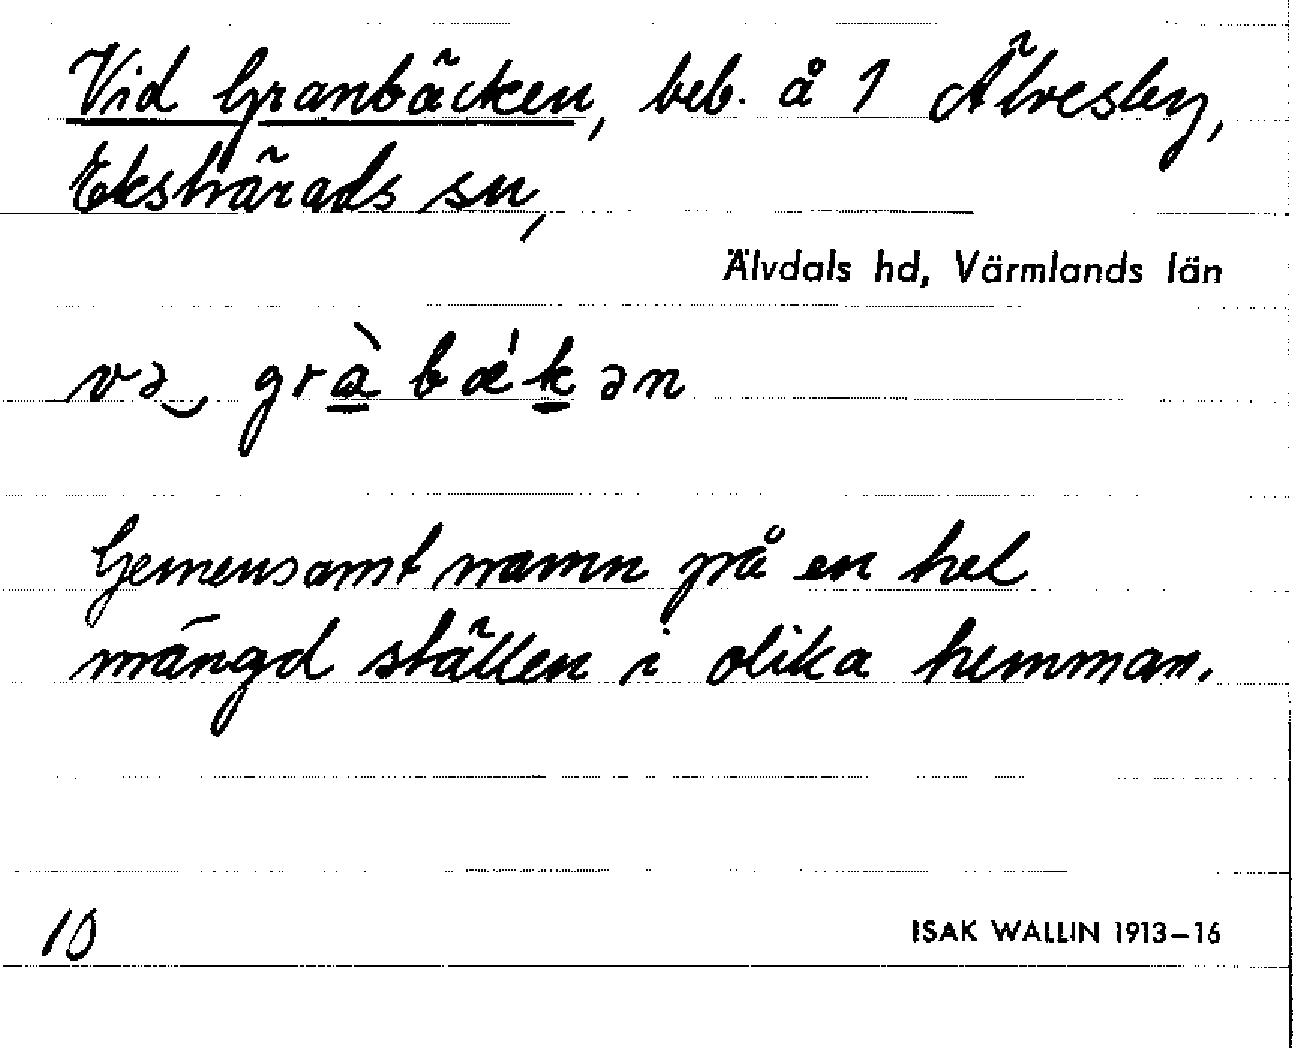 Vid Granbäcken, beb. å 1 Älvesby,
Ekshärads sn,
Älvdals hd, Värmlands län
və‿ grà̲ bǽk̲ən
Gemensamt namn på en hel
mängd ställen i olika hemman.
10
ISAK WALLIN 1913–16